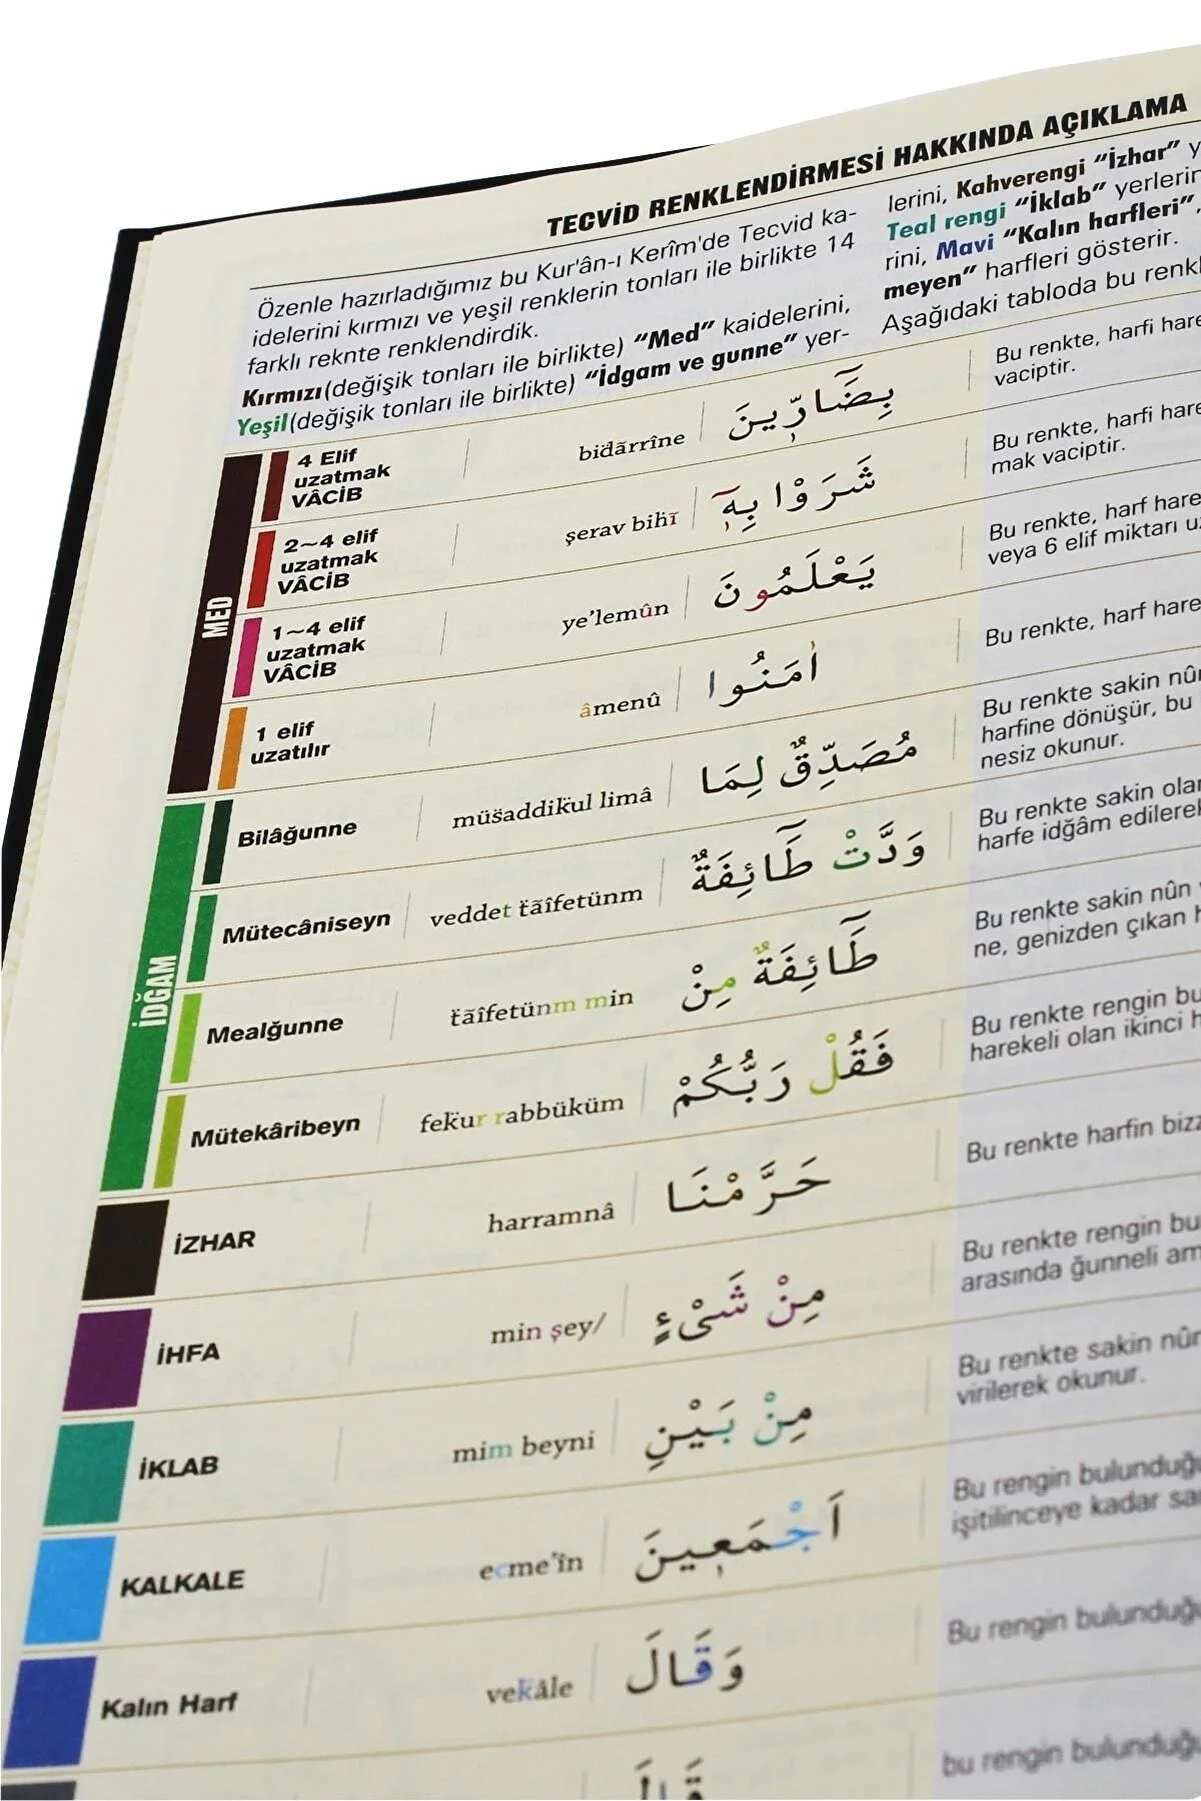 TECVİD RENKLENDİRMESİ HAKKINDA AÇIKLAMA
Özenle hazırladığımız bu Kur'ân-ı Kerîm'de Tecvid ka-
idelerini kırmızı ve yeşil renklerin tonları ile birlikte 14
farklı reknte renklendirdik.
Kırmızı(değişik tonları ile birlikte) "Med" kaidelerini,
Yeşil(değişik tonları ile birlikte) "İdgam ve gunne" yer-
lerini, Kahverengi "İzhar"
Teal rengi "İklab" yerlerin
rini, Mavi "Kalın harfleri",
meyen" harfleri gösterir.
Aşağıdaki tabloda bu
MED
4 Elif
uzatmak
VÂCİB
bid̈ârrîne
بِضَٓارّ۪ينَ
Bu renkte, harfi
vaciptir.
2~4 elif
uzatmak
VÂCİB
şerav bihî
شَرَوْا بِه۪ٓ
Bu renkte, harfi
mak vaciptir.
1~4 elif
uzatmak
VÂCİB
ye'lemûn
يَعْلَمُونَ
Bu renkte, harf
veya 6 elif miktarı
1 elif
uzatılır
âmenû
اٰمَنُوا
Bu renkte, harf
İDĞAM
Bilâğunne
müs̈addik̈ul limâ
مُصَدِّقٌ لِمَا
Bu renkte sakin
harfine dönüşür, bu
nesiz okunur.
Mütecâniseyn
veddet ẗâîfetünm
وَدَّتْ طَٓائِفَةٌ
Bu renkte sakin
harfe idğâm edilerek
Mealğunne
ẗâîfetünm min
طَٓائِفَةٌ مِنْ
Bu renkte sakin nûn
ne, genizden çıkan
Mütekâribeyn
fek̈ur rabbüküm
فَقُلْ رَبُّكُمْ
Bu renkte rengin
harekeli olan ikinci
İZHAR
harramnâ
حَرَّمْنَا
Bu renkte harfin
İHFA
min şey/
مِنْ شَیْءٍ
Bu renkte rengin
arasında ğunneli
İKLAB
mim beyni
مِنْ بَيْنِ
Bu renkte sakin
virilerek okunur.
KALKALE
ecme'în
اَجْمَع۪ينَ
Bu rengin
işitilinceye kadar
Kalın Harf
vek̈âle
وَقَالَ
Bu rengin
bu rengin